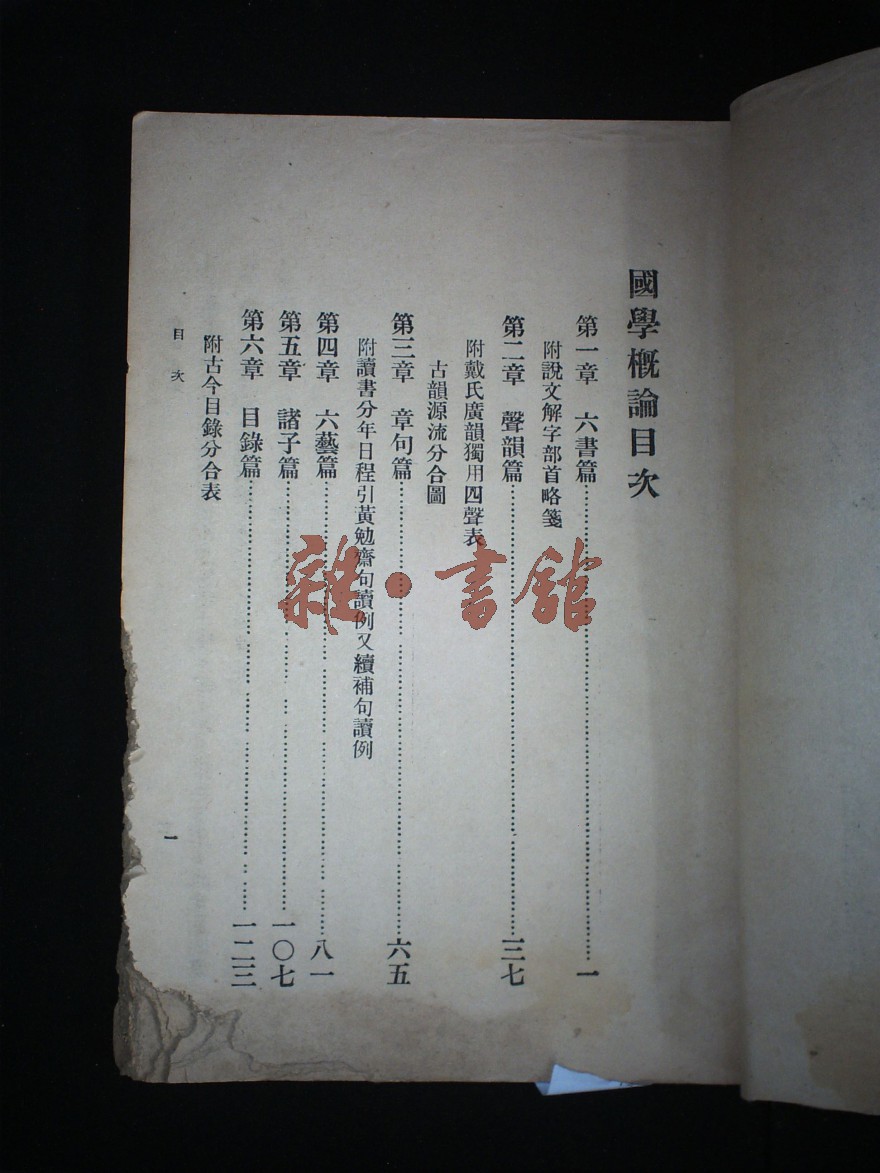 國學概論目次
第一章　六書篇……一
附說文解字部首略箋
第二章　聲韻篇……三七
附戴氏廣韻獨用四聲表
古韻源流分合圖
第三章　章句篇……六五
附讀書分年日程引黃勉齋句讀例又續補句讀例
第四章　六藝篇……八一
第五章　諸子篇……一〇七
第六章　目錄篇……一二三
附古今目錄分合表
目次
一
雜·書館